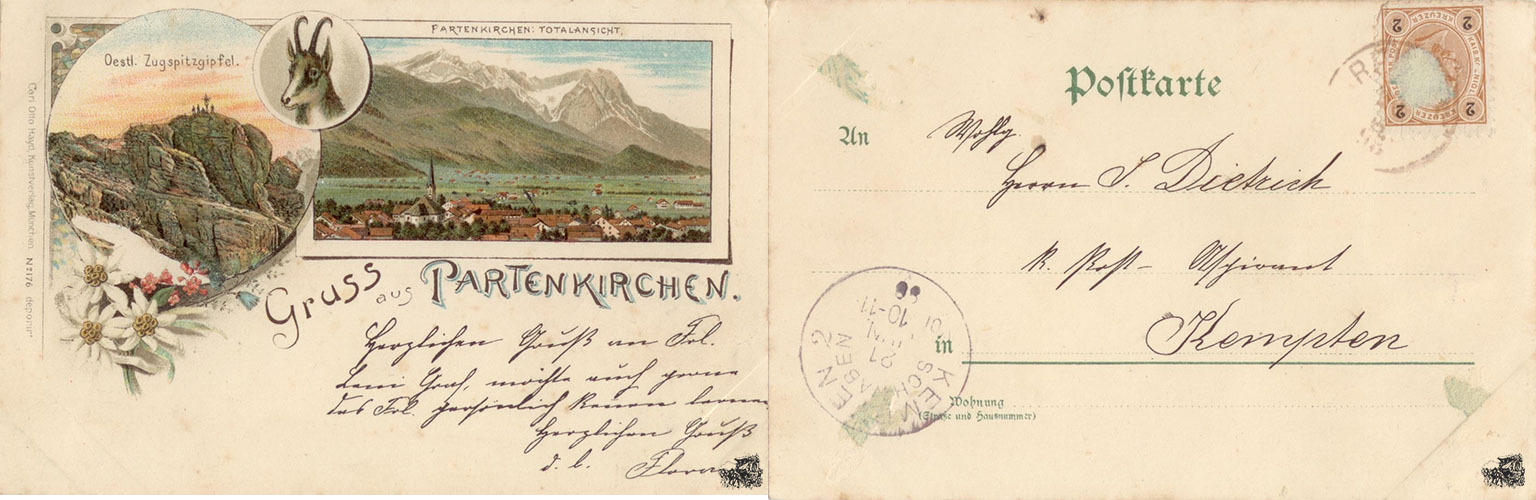 PARTENKIRCHEN: TOTALANSICHT.
Oestl. Zugspitzgipfel.
Carl Otto Hayd, Kunstverlag, München. No 1176 deponirt
Gruss aus PARTENKIRCHEN.
Herzlichen Gruß an Frl.
Leni Graf, möchte auch gerne
das Frl. persönlich kennen lernen
Herzlichen Gruß
d. b.
Postkarte
2 KREUZER 2
2 KREUZER 2
An
Wohlg.
Herrn J. Dietrich
k. Post- Aspirant
in Kempten
Wohnung
(Straße und Hausnummer)
KEMPTEN 2
SCHWABEN
21
10-11